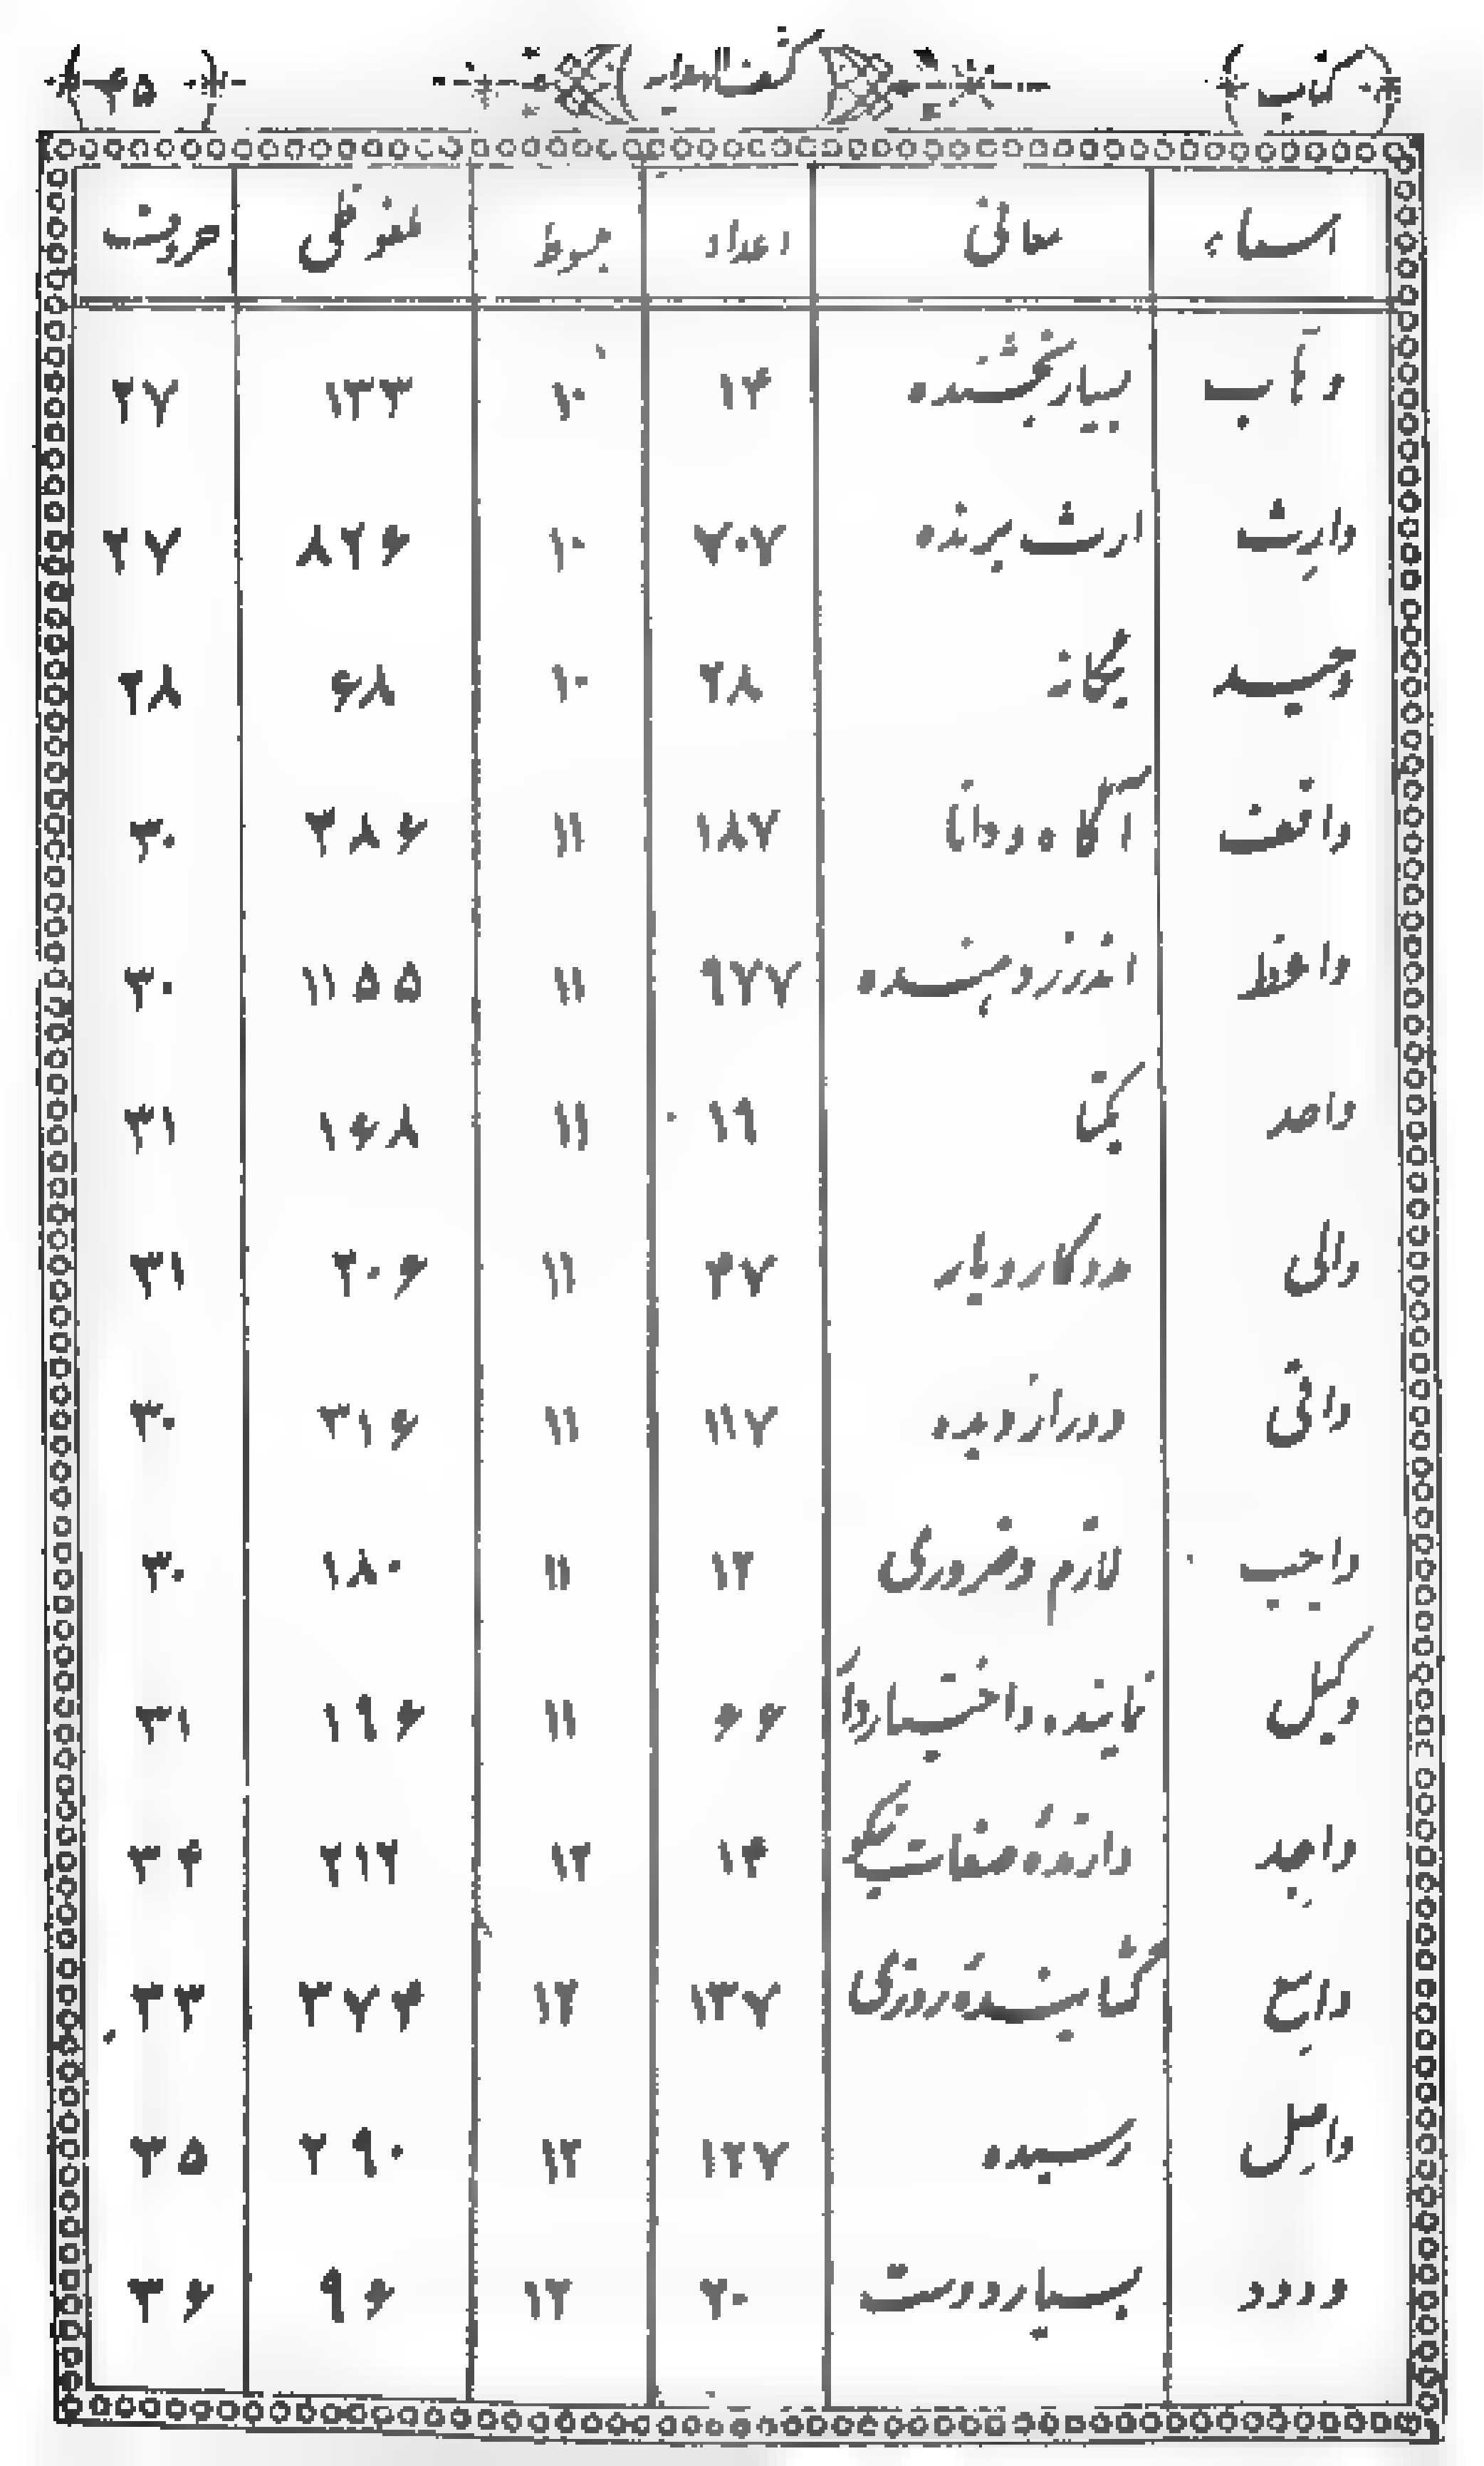 کتاب کشف الهدایه ۴۵
اسماء معانی اعداد مبسوط ملفوظی حروف
وهّاب بسیار بخشنده ۱۴ ۱۰ ۱۳۳ ۲۷
وارِث ارث برنده ۷۰۷ ۱۰ ۸۲۶ ۲۷
وحید یگانه ۲۸ ۱۰ ۶۸ ۲۸
واقف آگاه و دانا ۱۸۷ ۱۱ ۲۸۶ ۳۰
واعظ اندرز دهنده ۹۷۷ ۱۱ ۱۱۵۵ ۳۰
واحد یکی ۱۹ ۱۱ ۱۶۸ ۳۱
والی مددکار و یار ۴۷ ۱۱ ۲۰۶ ۳۱
واقی ۱۱۷ ۱۱ ۳۱۶ ۳۰
واجب لازم و ضروری ۱۲ ۱۱ ۱۸۰ ۳۰
وکیل نماینده و اختیاردار ۶۶ ۱۱ ۱۹۶ ۳۱
واجِد دارندهٔ صفات نیکو ۱۴ ۱۲ ۲۱۲ ۳۴
واسِع گشایندهٔ روزی ۱۳۷ ۱۲ ۳۷۴ ۳۳
واصِل رسیده ۱۲۷ ۱۲ ۲۹۰ ۳۵
ودود بسیار دوست ۲۰ ۱۲ ۹۶ ۳۶